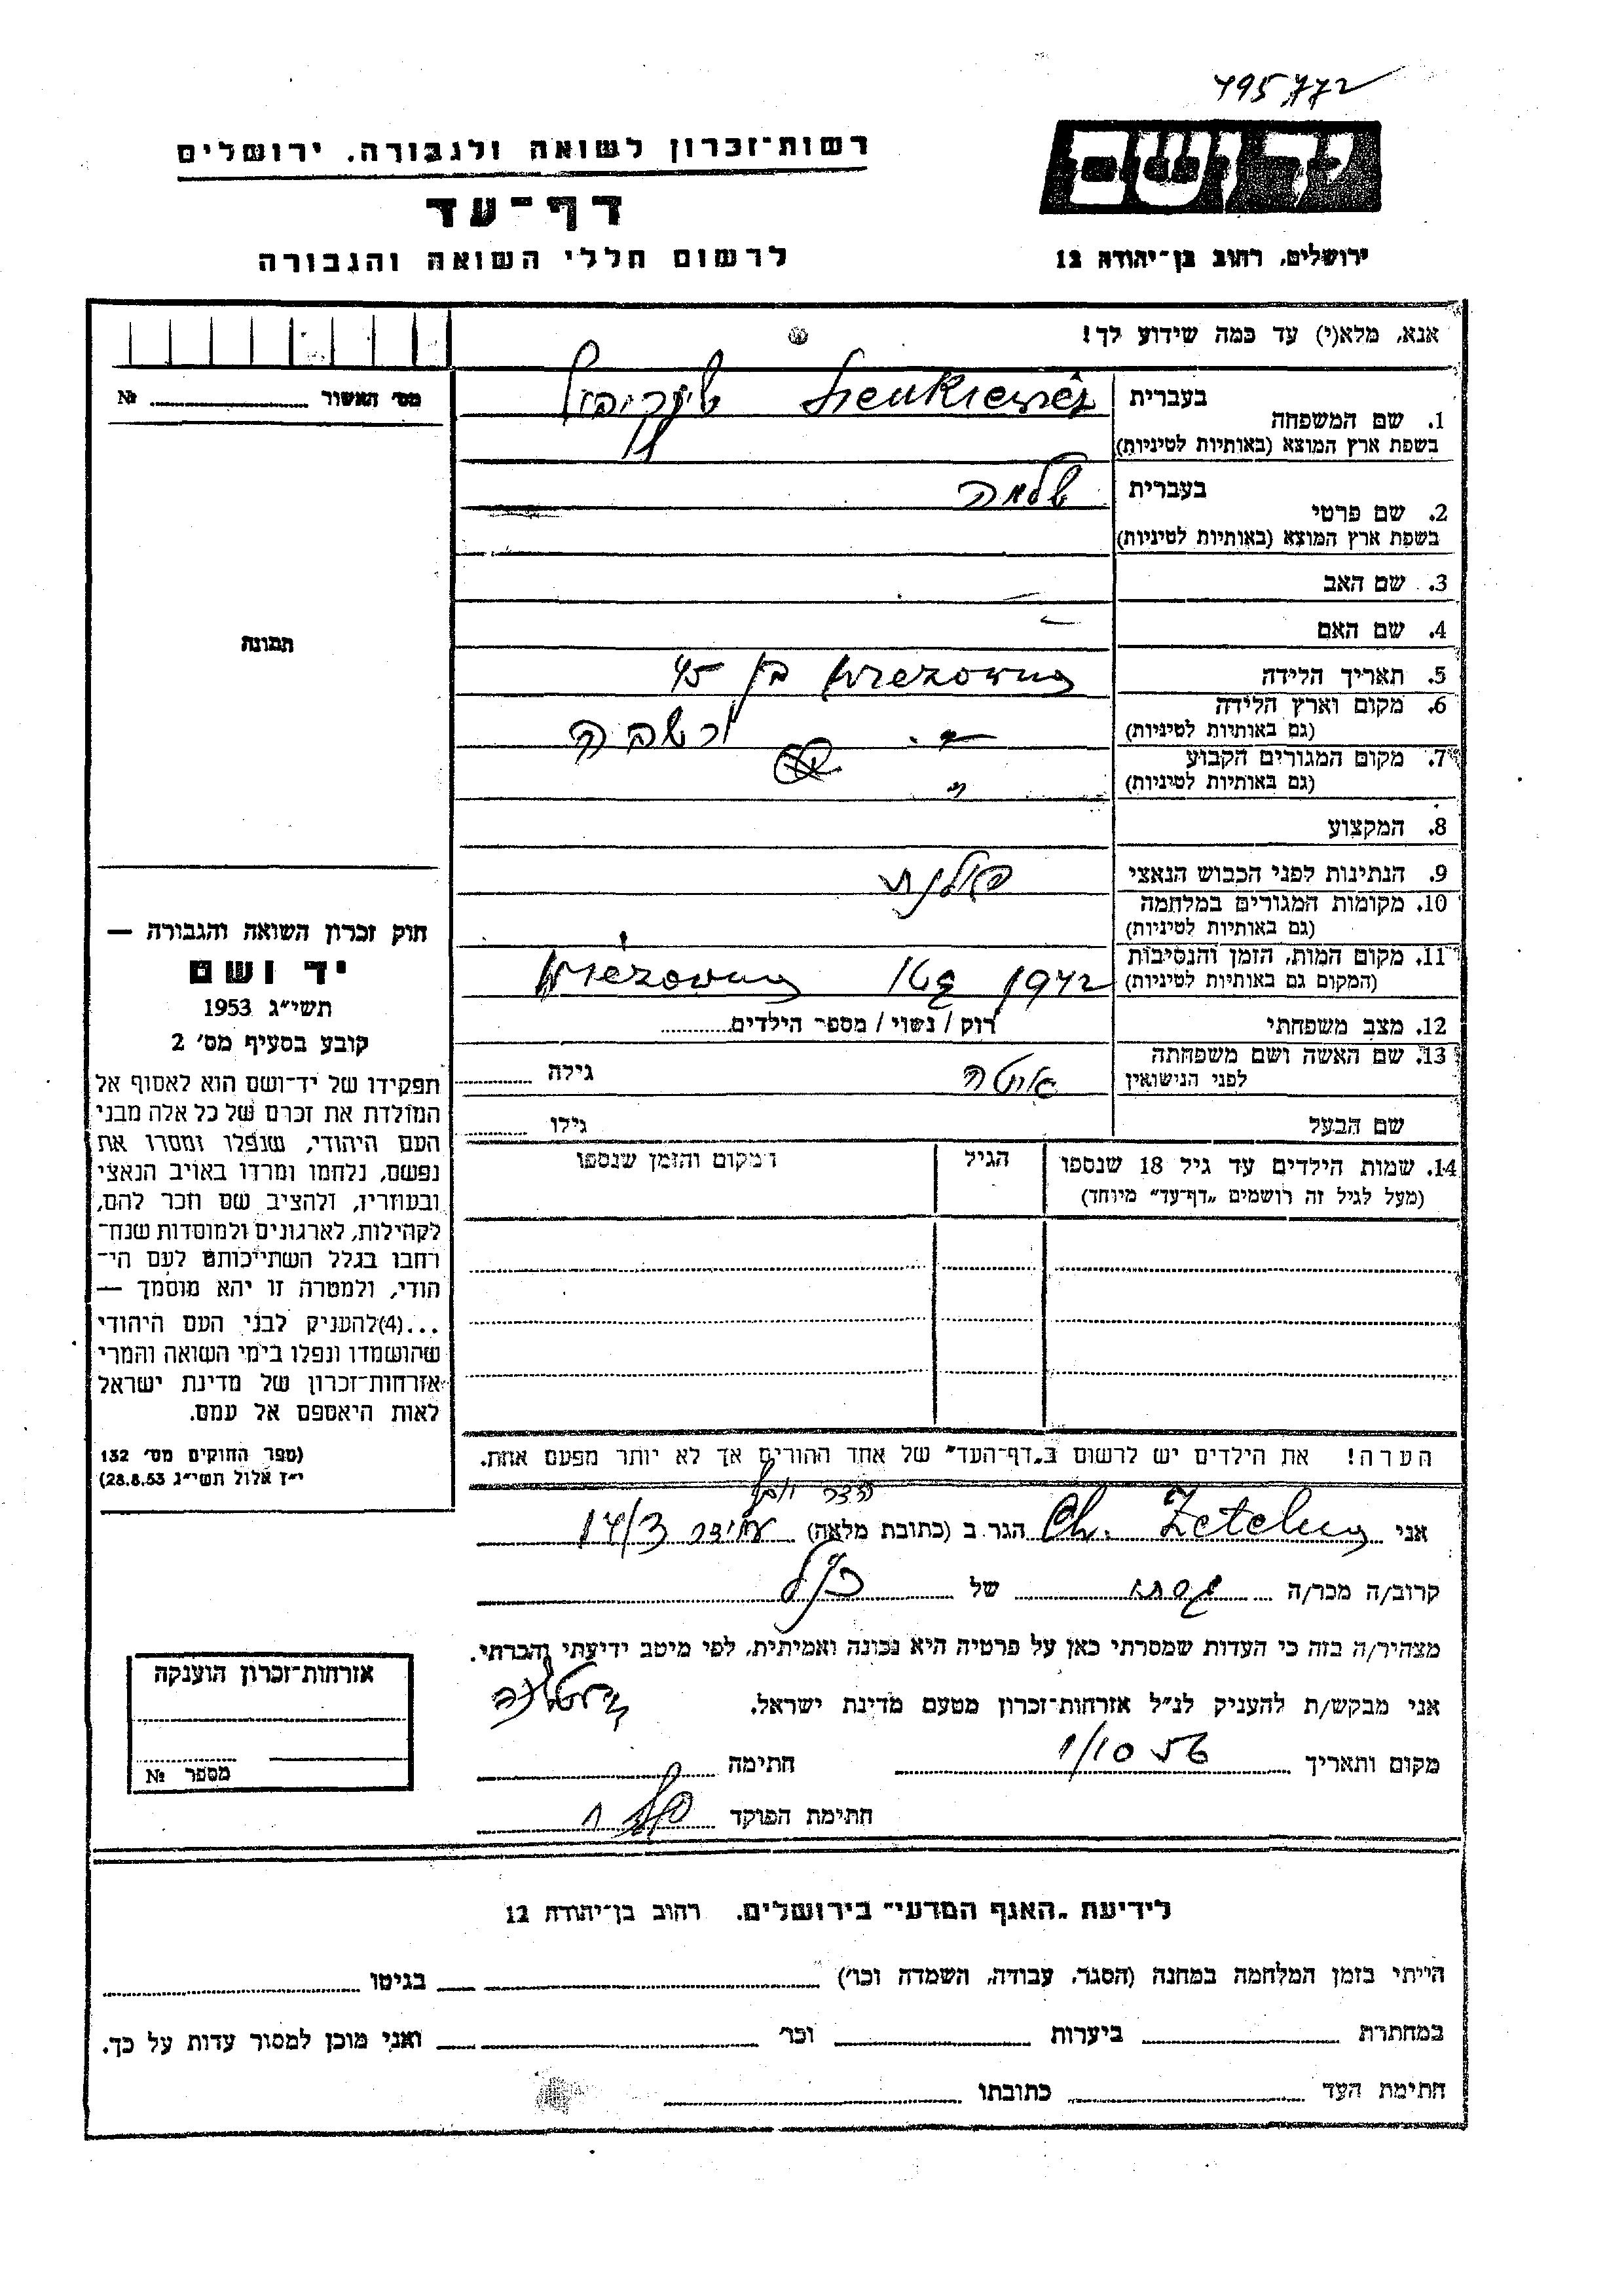 495772
רשות־זכרון לשואה ולגבורה, ירושלים
יד ושם
דף־עד
לרשום חללי השואה והגבורה
ירושלים, רחוב בן־יהודה 12
אנא, מלא(י) עד כמה שידוע לך!
מס' האשור № 
1. שם המשפחה
בעברית
בשפת ארץ המוצא (באותיות לטיניות)
2. שם פרטי
בעברית שלמה
בשפת ארץ המוצא (באותיות לטיניות)
3. שם האב
4. שם האם
5. תאריך הלידה בן 45
6. מקום וארץ הלידה
(גם באותיות לטיניות)
7. מקום המגורים הקבוע
(גם באותיות לטיניות)
8. המקצוע
9. הנתינות לפני הכבוש הנאצי פולנית
10. מקומות המגורים במלחמה
(גם באותיות לטיניות)
11. מקום המות, הזמן והנסיבות 1942
(המקום גם באותיות לטיניות)
12. מצב משפחתי רוק / נשוי / מספר הילדים
13. שם האשה ושם משפחתה
לפני הנישואין
גילה
שם הבעל גילו
14. שמות הילדים עד גיל 18 שנספו הגיל המקום והזמן שנספו
(מעל לגיל זה רושמים "דף־עד" מיוחד)
הערה! את הילדים יש לרשום ב"דף־העד" של אחד ההורים אך לא יותר מפעם אחת.
תמונה
חוק זכרון השואה והגבורה —
יד ושם
תשי"ג 1953
קובע בסעיף מס' 2
תפקידו של יד־ושם הוא לאסוף אל
המולדת את זכרם של כל אלה מבני
העם היהודי, שנפלו ומסרו את
נפשם, נלחמו ומרדו באויב הנאצי
ובעוזריו, ולהציב שם וזכר להם,
לקהילות, לארגונים ולמוסדות שנח־
רחבו בגלל השתייכותם לעם הי־
הודי, ולמטרה זו יהא מוסמך —
...(4)להעניק לבני העם היהודי
שהושמדו ונפלו בימי השואה והמרי
אזרחות־זכרון של מדינת ישראל
לאות היאספם אל עמם.
(ספר החוקים מס' 132
י"ז אלול תשי"ג 28.8.53)
אני Ch. הגר ב (כתובת מלאה) 14/3
קרוב/ה מכר/ה של
מצהיר/ה בזה כי העדות שמסרתי כאן על פרטיה היא נכונה ואמיתית, לפי מיטב ידיעתי והכרתי.
אני מבקש/ת להעניק לנ"ל אזרחות־זכרון מטעם מדינת ישראל.
מקום ותאריך 1/10 56 חתימה
חתימת הפוקד
אזרחות־זכרון הוענקה
מספר №
לידיעת "האגף המדעי" בירושלים, רחוב בן־יהודה 12
הייתי בזמן המלחמה במחנה (הסגר, עבודה, השמדה וכו') בגיטו
במחתרת ביערות וכו' ואני מוכן למסור עדות על כך.
חתימת העד כתובתו